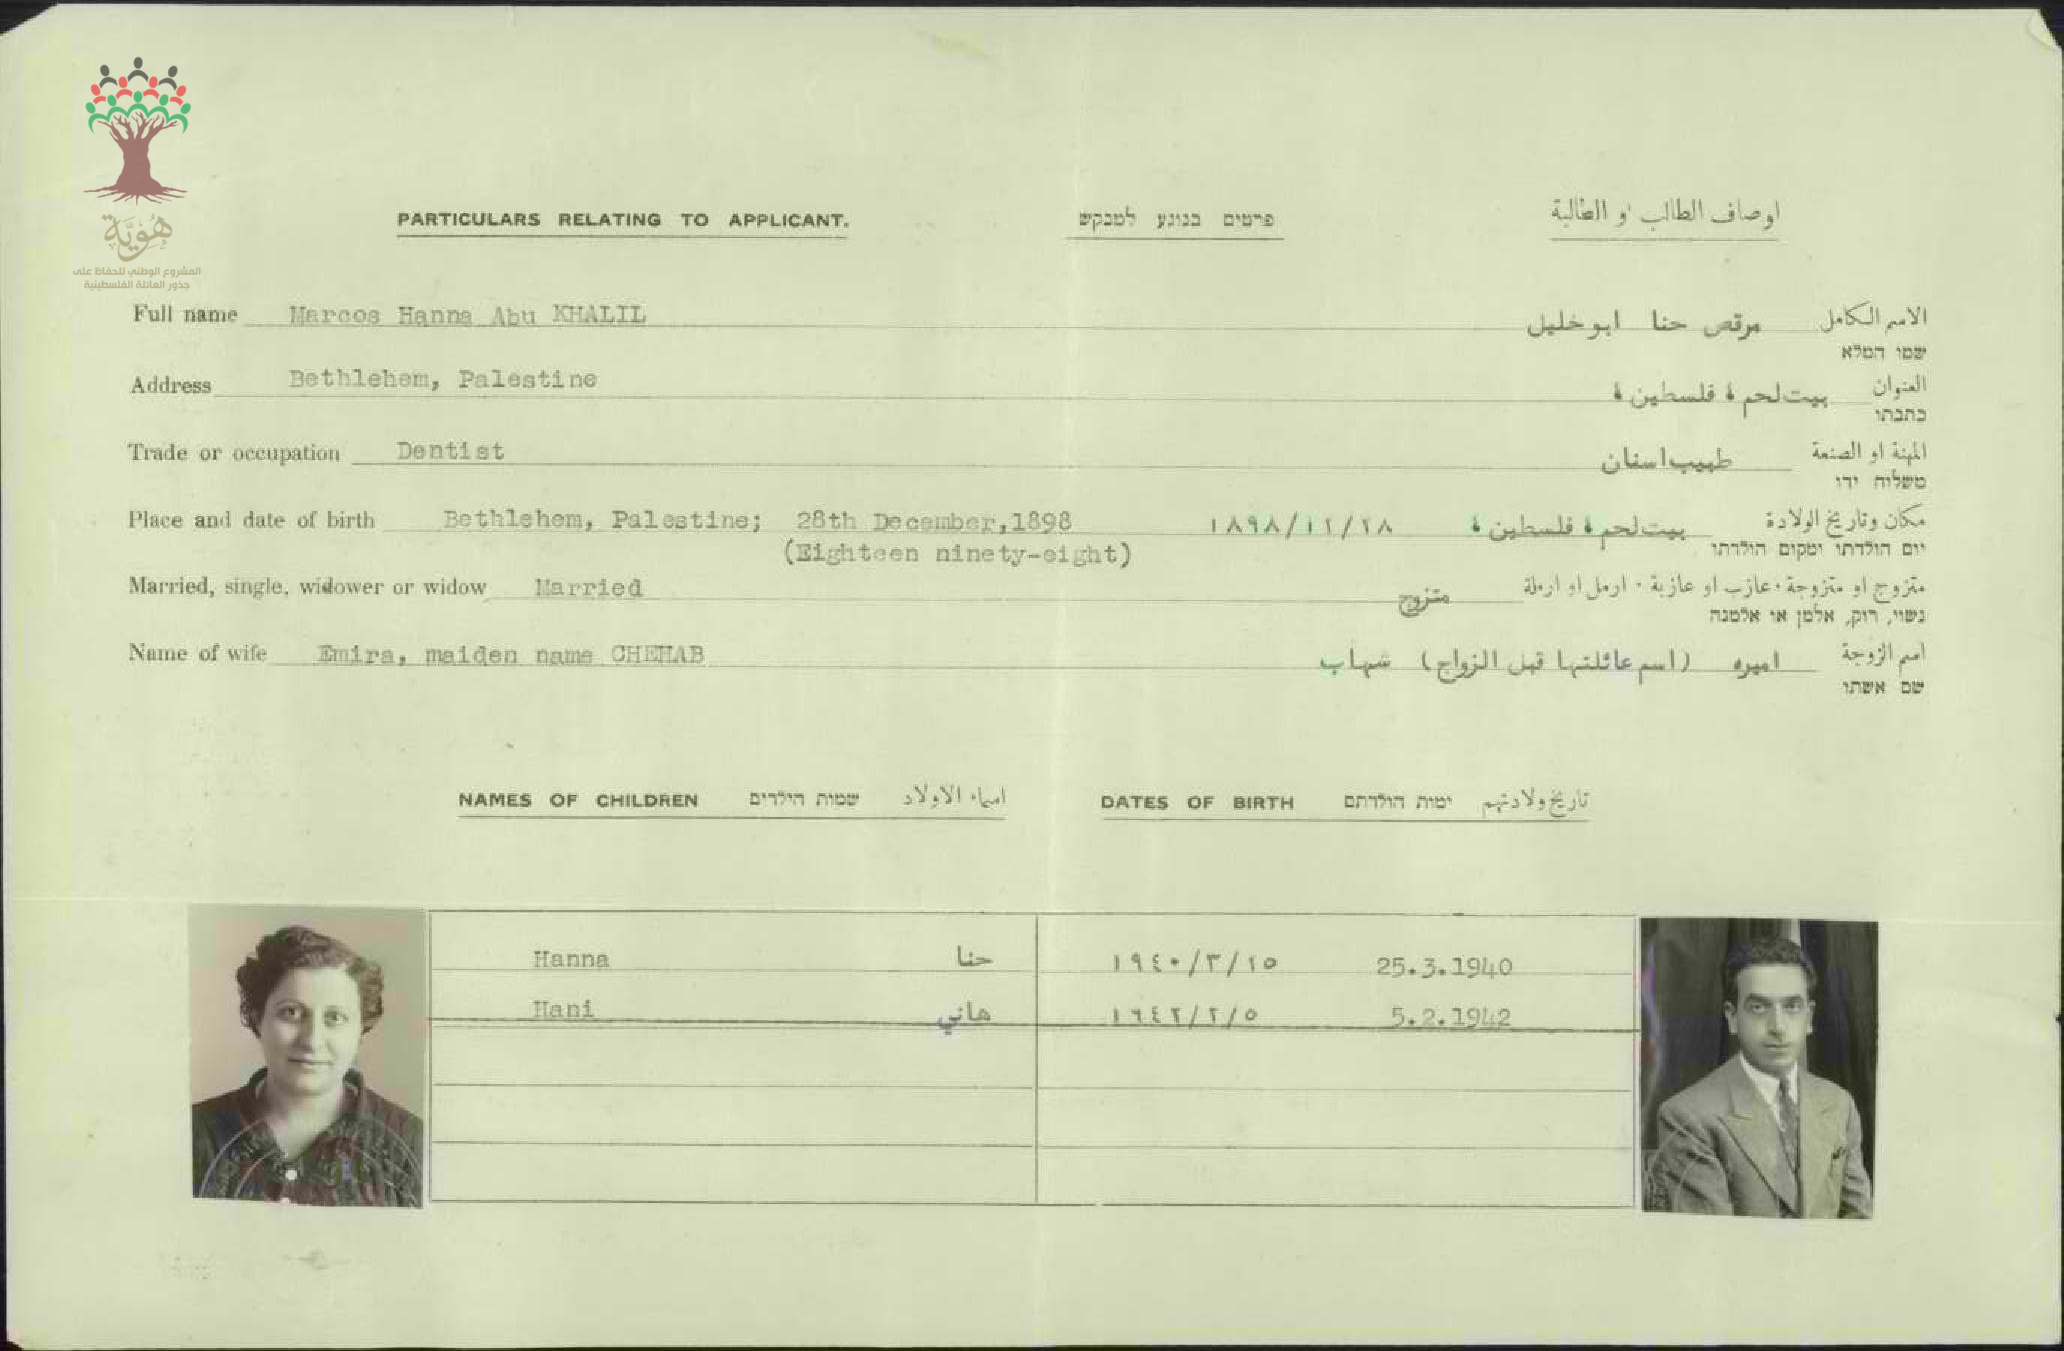 هُوِيَّة
المشروع الوطني للحفاظ على
جذور العائلة الفلسطينية
PARTICULARS RELATING TO APPLICANT. פרטים בנוגע למבקש اوصاف الطالب او الطالبة
Full name Marcos Hanna Abu KHALIL مرقص حنا ابو خليل الاسم الكامل
שמו המלא
Address Bethlehem, Palestine بيت لحم ، فلسطين ، العنوان
כתבתו
Trade or occupation Dentist طبيب اسنان المهنة او الصنعة
משלוח ידו
Place and date of birth Bethlehem, Palestine; 28th December,1898 ١٨٩٨/١٢/٢٨ بيت لحم ، فلسطين ، مكان وتاريخ الولادة
(Eighteen ninety-eight) יום הולדתו ומקום הולדתו
Married, single, widower or widow Married متزوج متزوج او متزوجة · عازب او عازبة · ارمل او ارملة
נשוי, רוק, אלמן או אלמנה
Name of wife Emira, maiden name CHEHAB اميره (اسم عائلتها قبل الزواج) شهاب اسم الزوجة
שם אשתו
NAMES OF CHILDREN שמות הילדים اسماء الاولاد DATES OF BIRTH ימות הולדתם تاريخ ولادتهم
Hanna حنا ١٩٤٠/٣/٢٥ 25.3.1940
Hani هاني ١٦٤٢/٢/٥ 5.2.1942